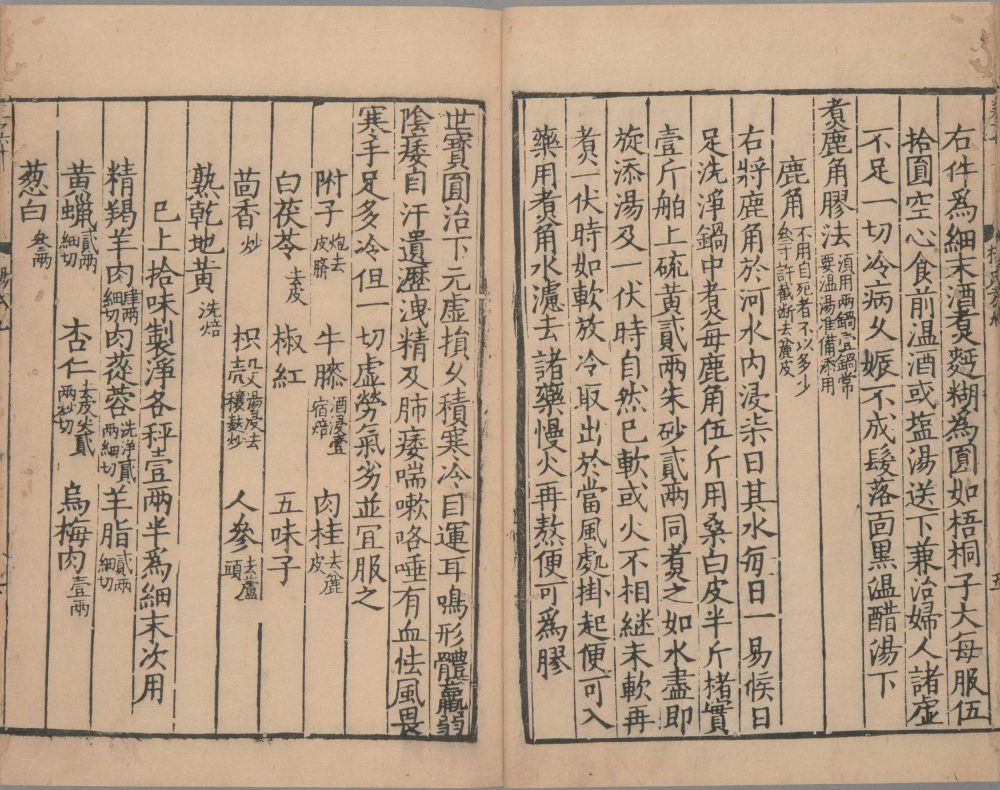 右件爲細末酒煮麪糊爲圓如梧桐子大每服伍
拾圓空心食前温酒或塩湯送下兼治婦人諸虛
不足一切冷病久娠不成髮落面黑温醋湯下
煮鹿角膠法須用兩鍋壹鍋常要温湯准備添用
鹿角不用自死者不以多少叁寸許截斷去麄皮
右將鹿角於河水内浸柒日其水每日一易候日
足洗淨鍋中煮每鹿角伍斤用桑白皮半斤楮實
壹斤舶上硫黄貳兩朱砂貳兩同煮之如水盡即
旋添湯及一伏時自然已軟或火不相継未軟再
煮一伏時如軟放冷取出於當風處掛起便可入
藥用煮角水濾去諸藥慢火再熬便可爲膠
世寳圓治下元虛損久積寒冷目運耳鳴形體羸弱
陰痿自汗遺瀝洩精及肺痿喘嗽咯唾有血怯風畏
寒手足多冷但一切虛勞氣劣並宜服之
附子炮去皮臍 牛膝酒浸壹宿焙 肉桂去麄皮
白茯苓去皮 椒紅 五味子
茴香炒 枳殼湯浸去穰麸炒 人參去蘆頭
熟乾地黄洗焙
已上拾味製淨各秤壹兩半爲細末次用
精羯羊肉肆兩細切 肉蓯蓉洗淨貳兩細切 羊脂貳兩細切
黄蠟貳兩細切 杏仁去皮尖貳兩炒切 烏梅肉壹兩
葱白叁兩